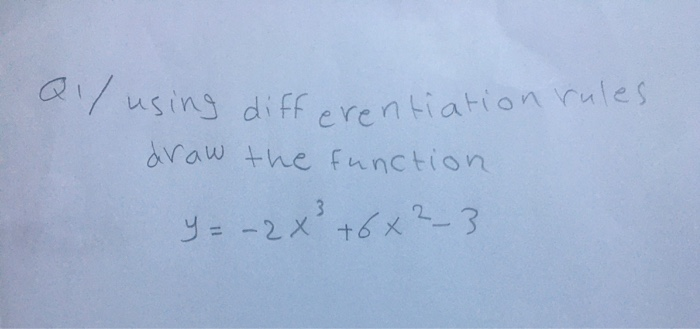 Q1/ using differentiation rules
draw the function
y = -2x³ +6x² - 3